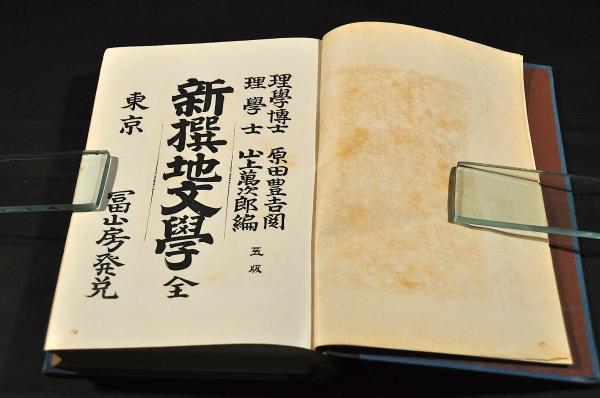 理學博士 原田豊吉閲
理學士 山上萬次郎編
五版
新撰地文學 全
東京 冨山房発兌